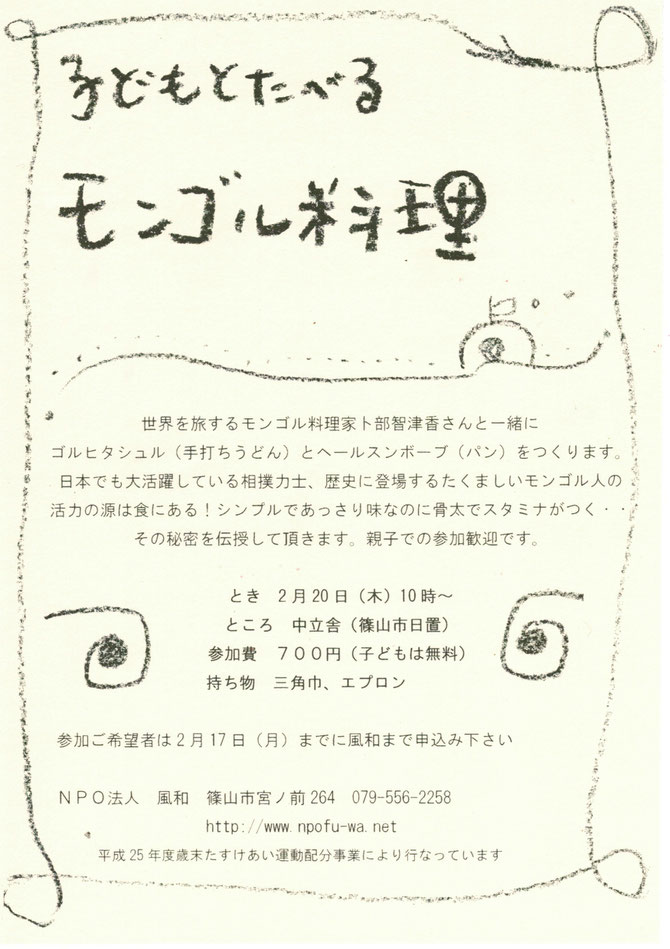 子どもとたべる
モンゴル料理
世界を旅するモンゴル料理家卜部智津香さんと一緒に
ゴルヒタシュル（手打ちうどん）とヘールスンボーブ（パン）をつくります。
日本でも大活躍している相撲力士、歴史に登場するたくましいモンゴル人の
活力の源は食にある！シンプルであっさり味なのに骨太でスタミナがつく・・
その秘密を伝授して頂きます。親子での参加歓迎です。
とき　２月20日（木）10時～
ところ　中立舎（篠山市日置）
参加費　７００円（子どもは無料）
持ち物　三角巾、エプロン
参加ご希望者は２月17日（月）までに風和まで申込み下さい
ＮＰＯ法人　風和　篠山市宮ノ前264　079-556-2258
http://www.npofu-wa.net
平成25年度歳末たすけあい運動配分事業により行なっています